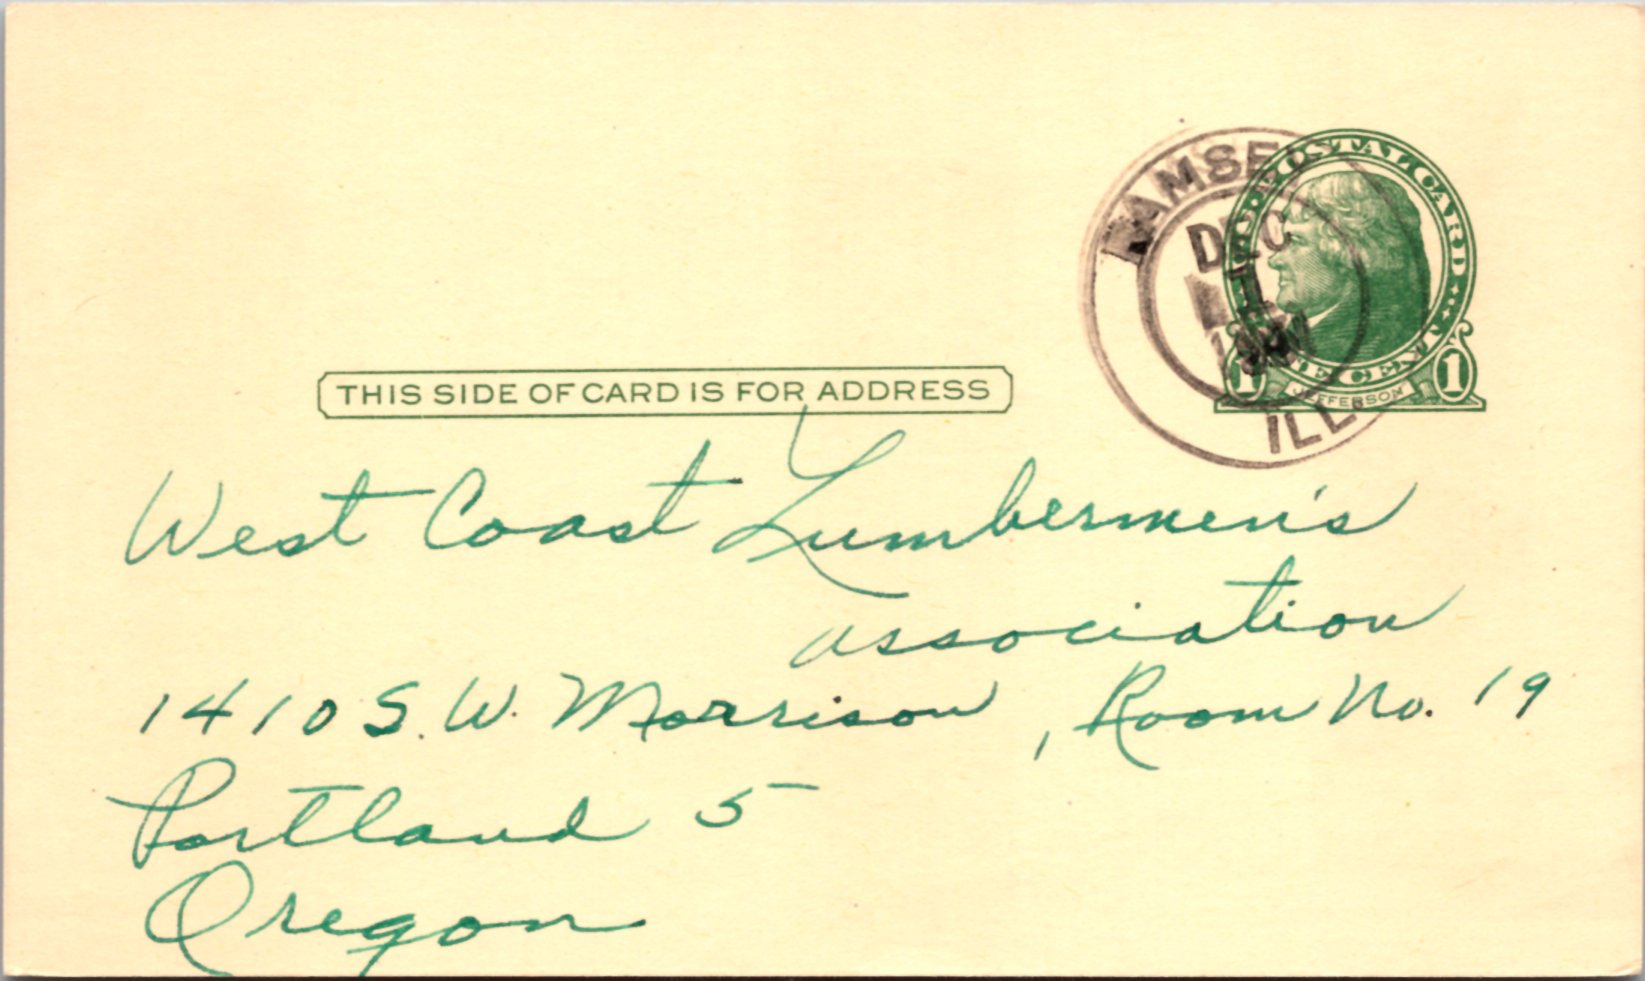 RAMSEY
DEC
1
ILL.
U.S. POSTAL CARD
ONE CENT
1 JEFFERSON 1
THIS SIDE OF CARD IS FOR ADDRESS
West Coast Lumbermen's
association
1410 S.W. Morrison, Room No. 19
Portland 5
Oregon